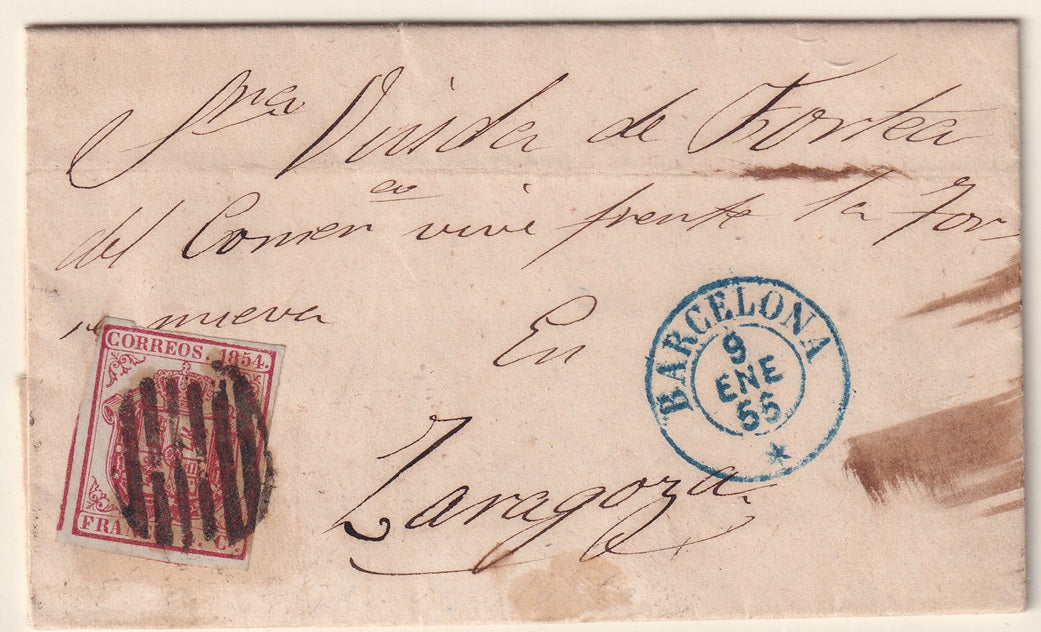 Sra Viuda de Fortea
del Comercio vive frente la Tor
re nueva
En
Zaragoza
CORREOS. 1854.
FRAN C.
BARCELONA
9
ENE
56